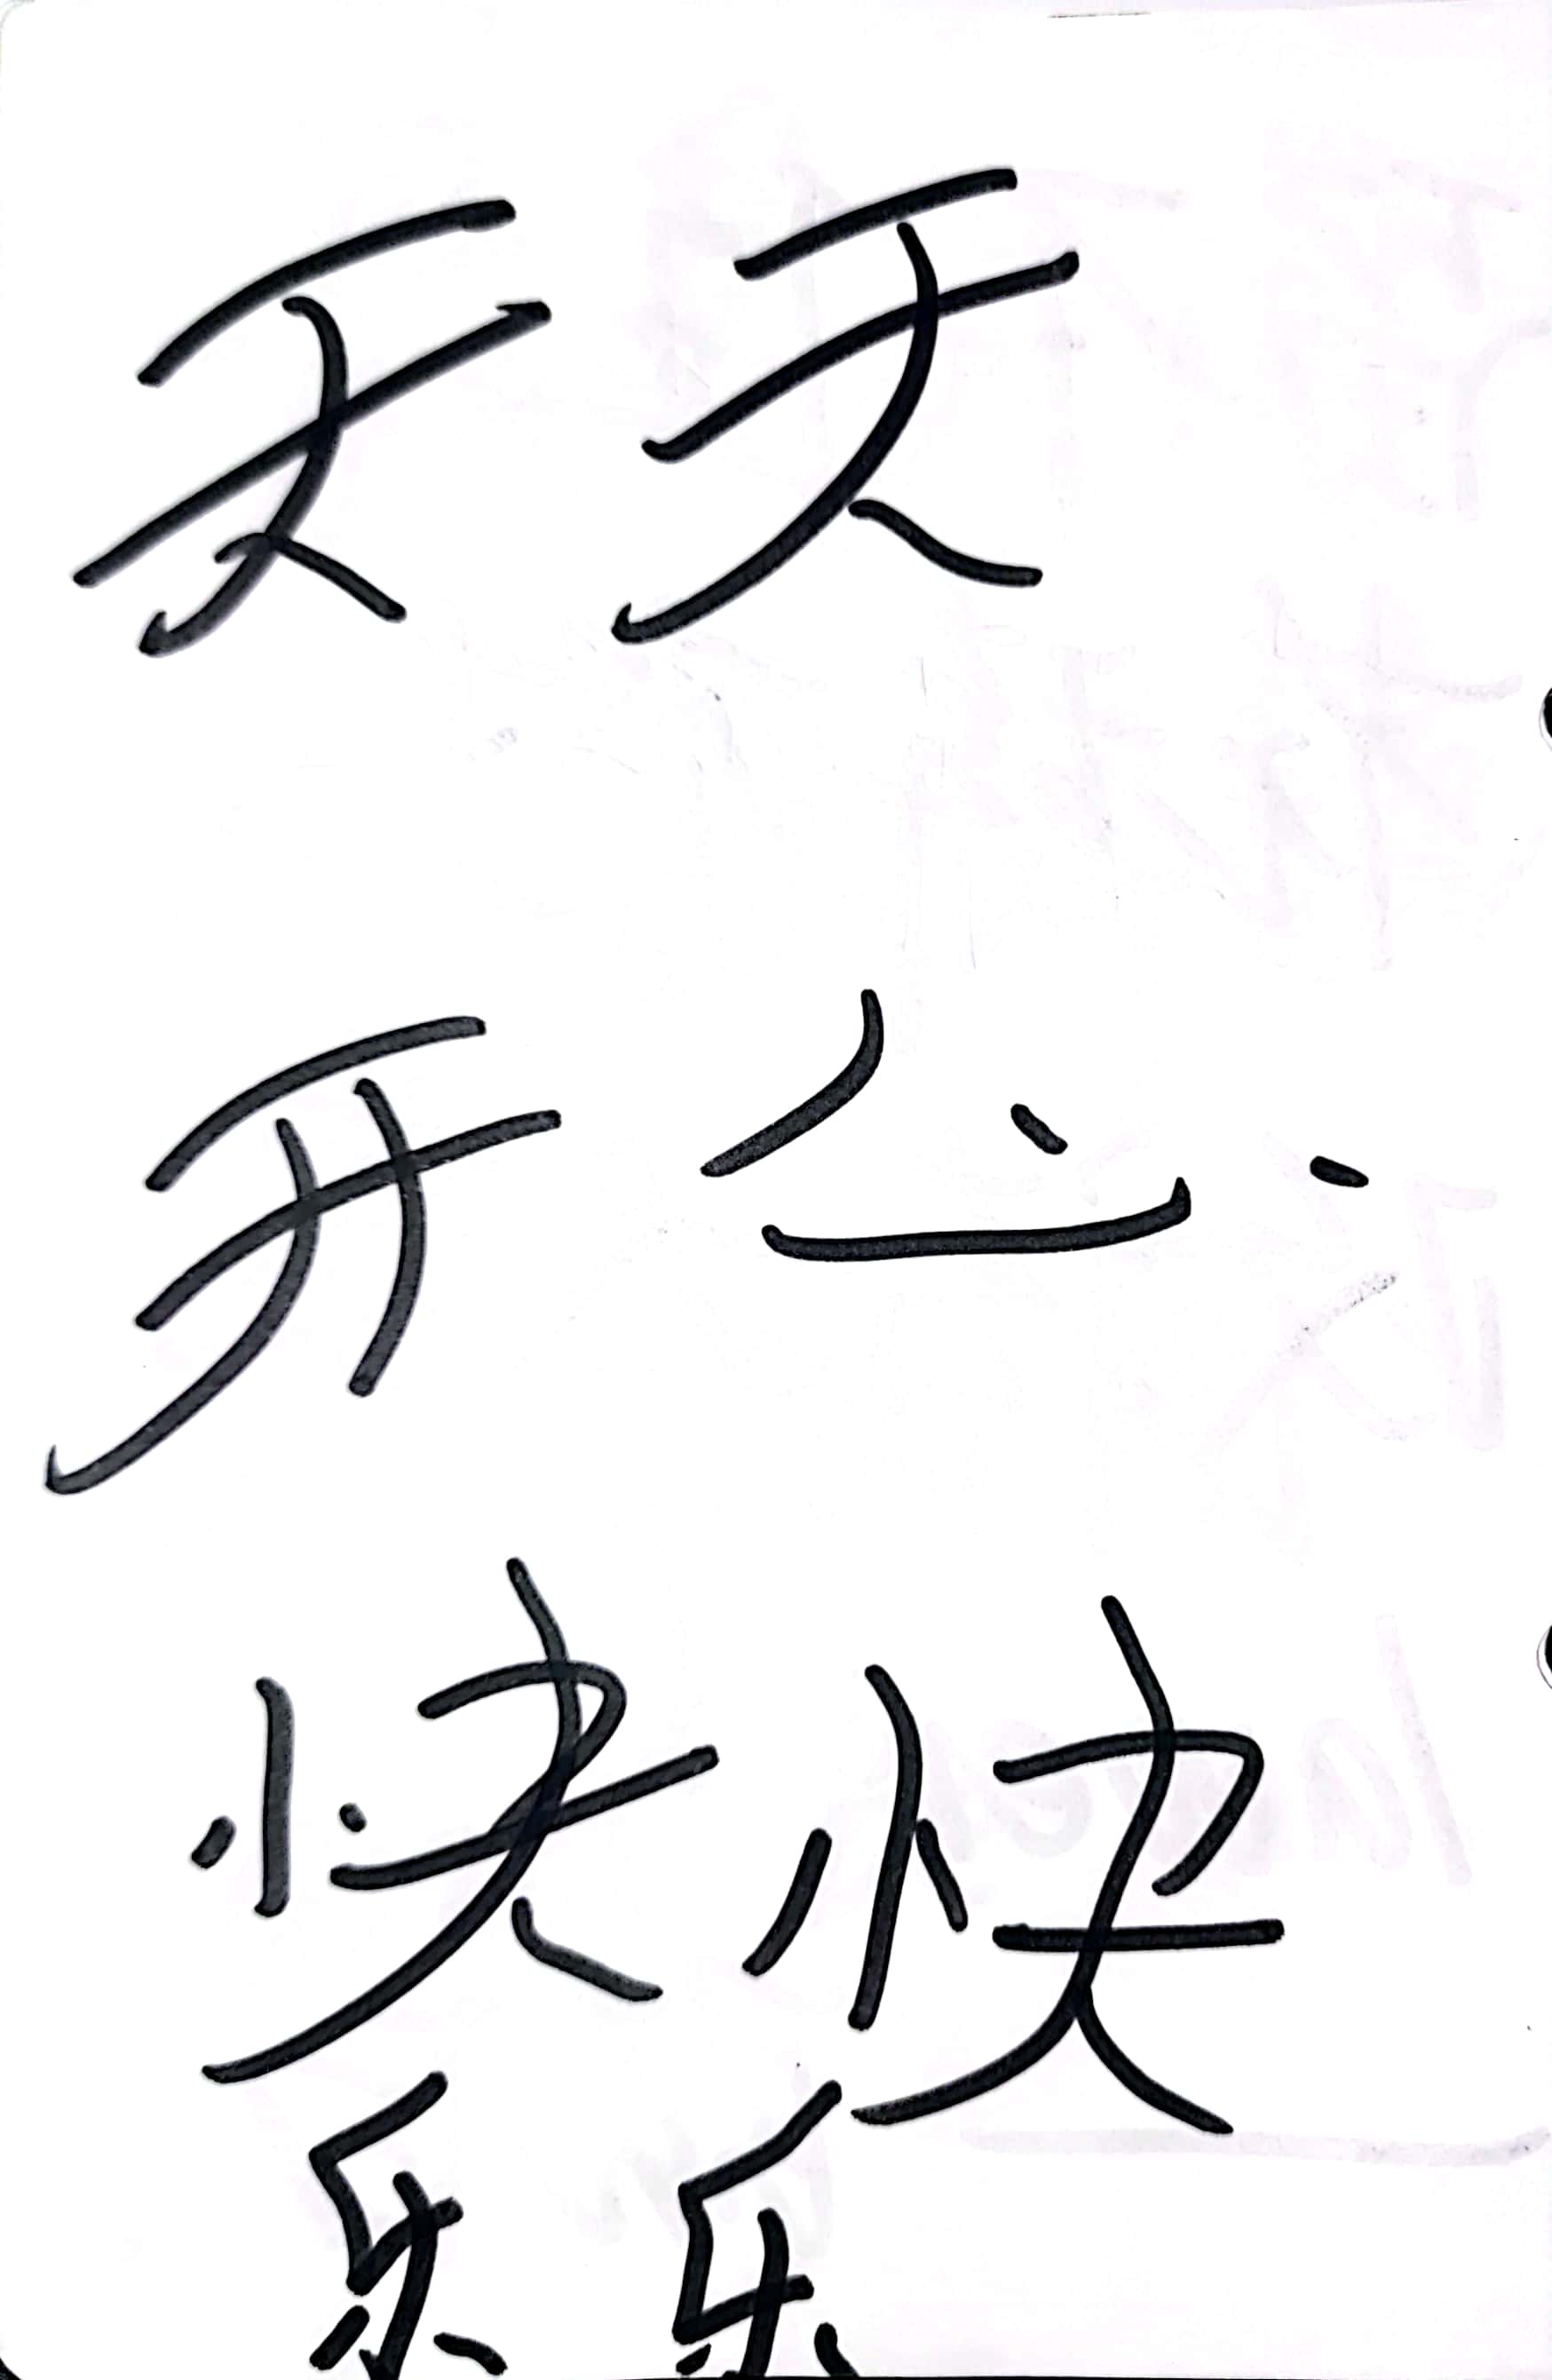 天天
开心
快快
乐乐